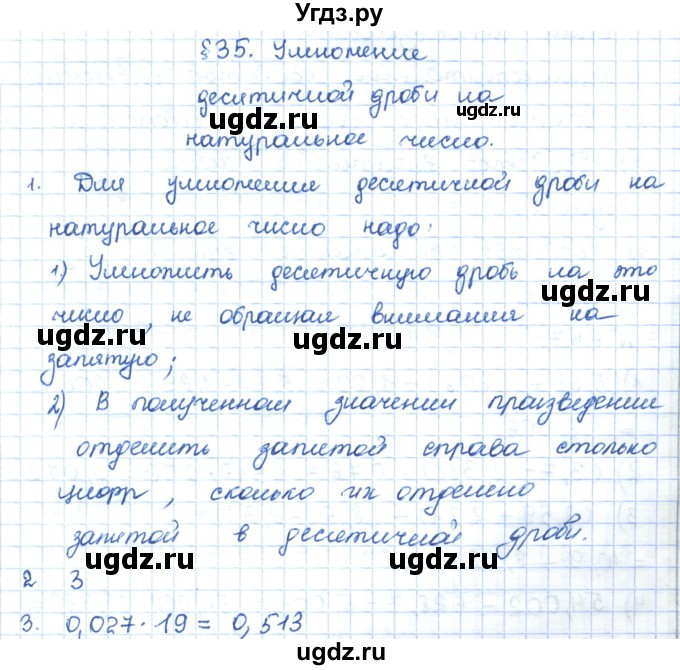 Угдз.ру
§35. Умножение
десятичной дроби на
ugdz.ru ugdz.ru
натуральное число.
1. Для умножения десятичной дроби на
натуральное число надо:
1) Умножить десятичную дробь на это
ugdz.ru
число, не обращая внимания на
ugdz.ru ugdz.ru
запятую;
2) В полученном значении произведении
отделить запятой справа столько
ugdz.ru
цифр, сколько их отделено
запятой в десятичной дроби.
ugdz.ru ugdz.ru
2 3
3. 0,027 · 19 = 0,513